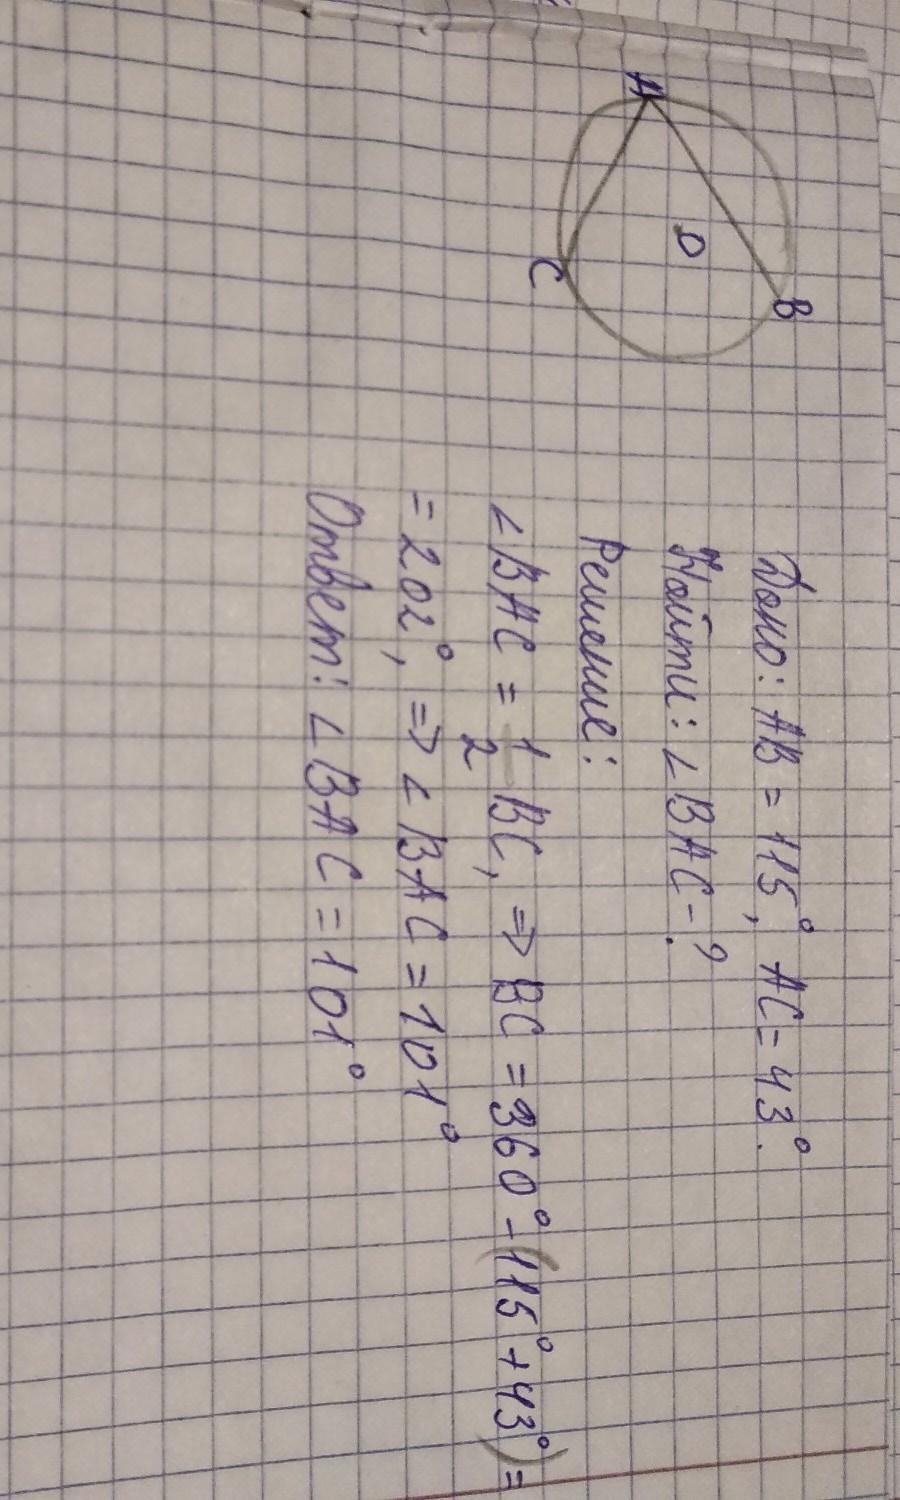 A
B
O
C
Дано: AB = 115°, AC = 43°.
Найти: ∠BAC - ?
Решение:
∠BAC = 1/2 BC, => BC = 360° - (115° + 43°) =
= 202°, => ∠BAC = 101°
Ответ: ∠BAC = 101°